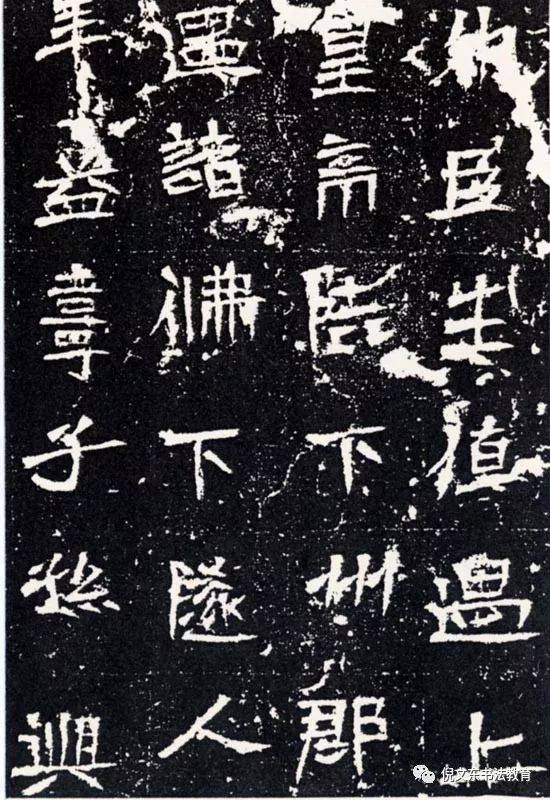 臣生值遇上
皇帝陛下州郡
遇諸佛下墜人
年益壽子孫興
倪文东书法教育